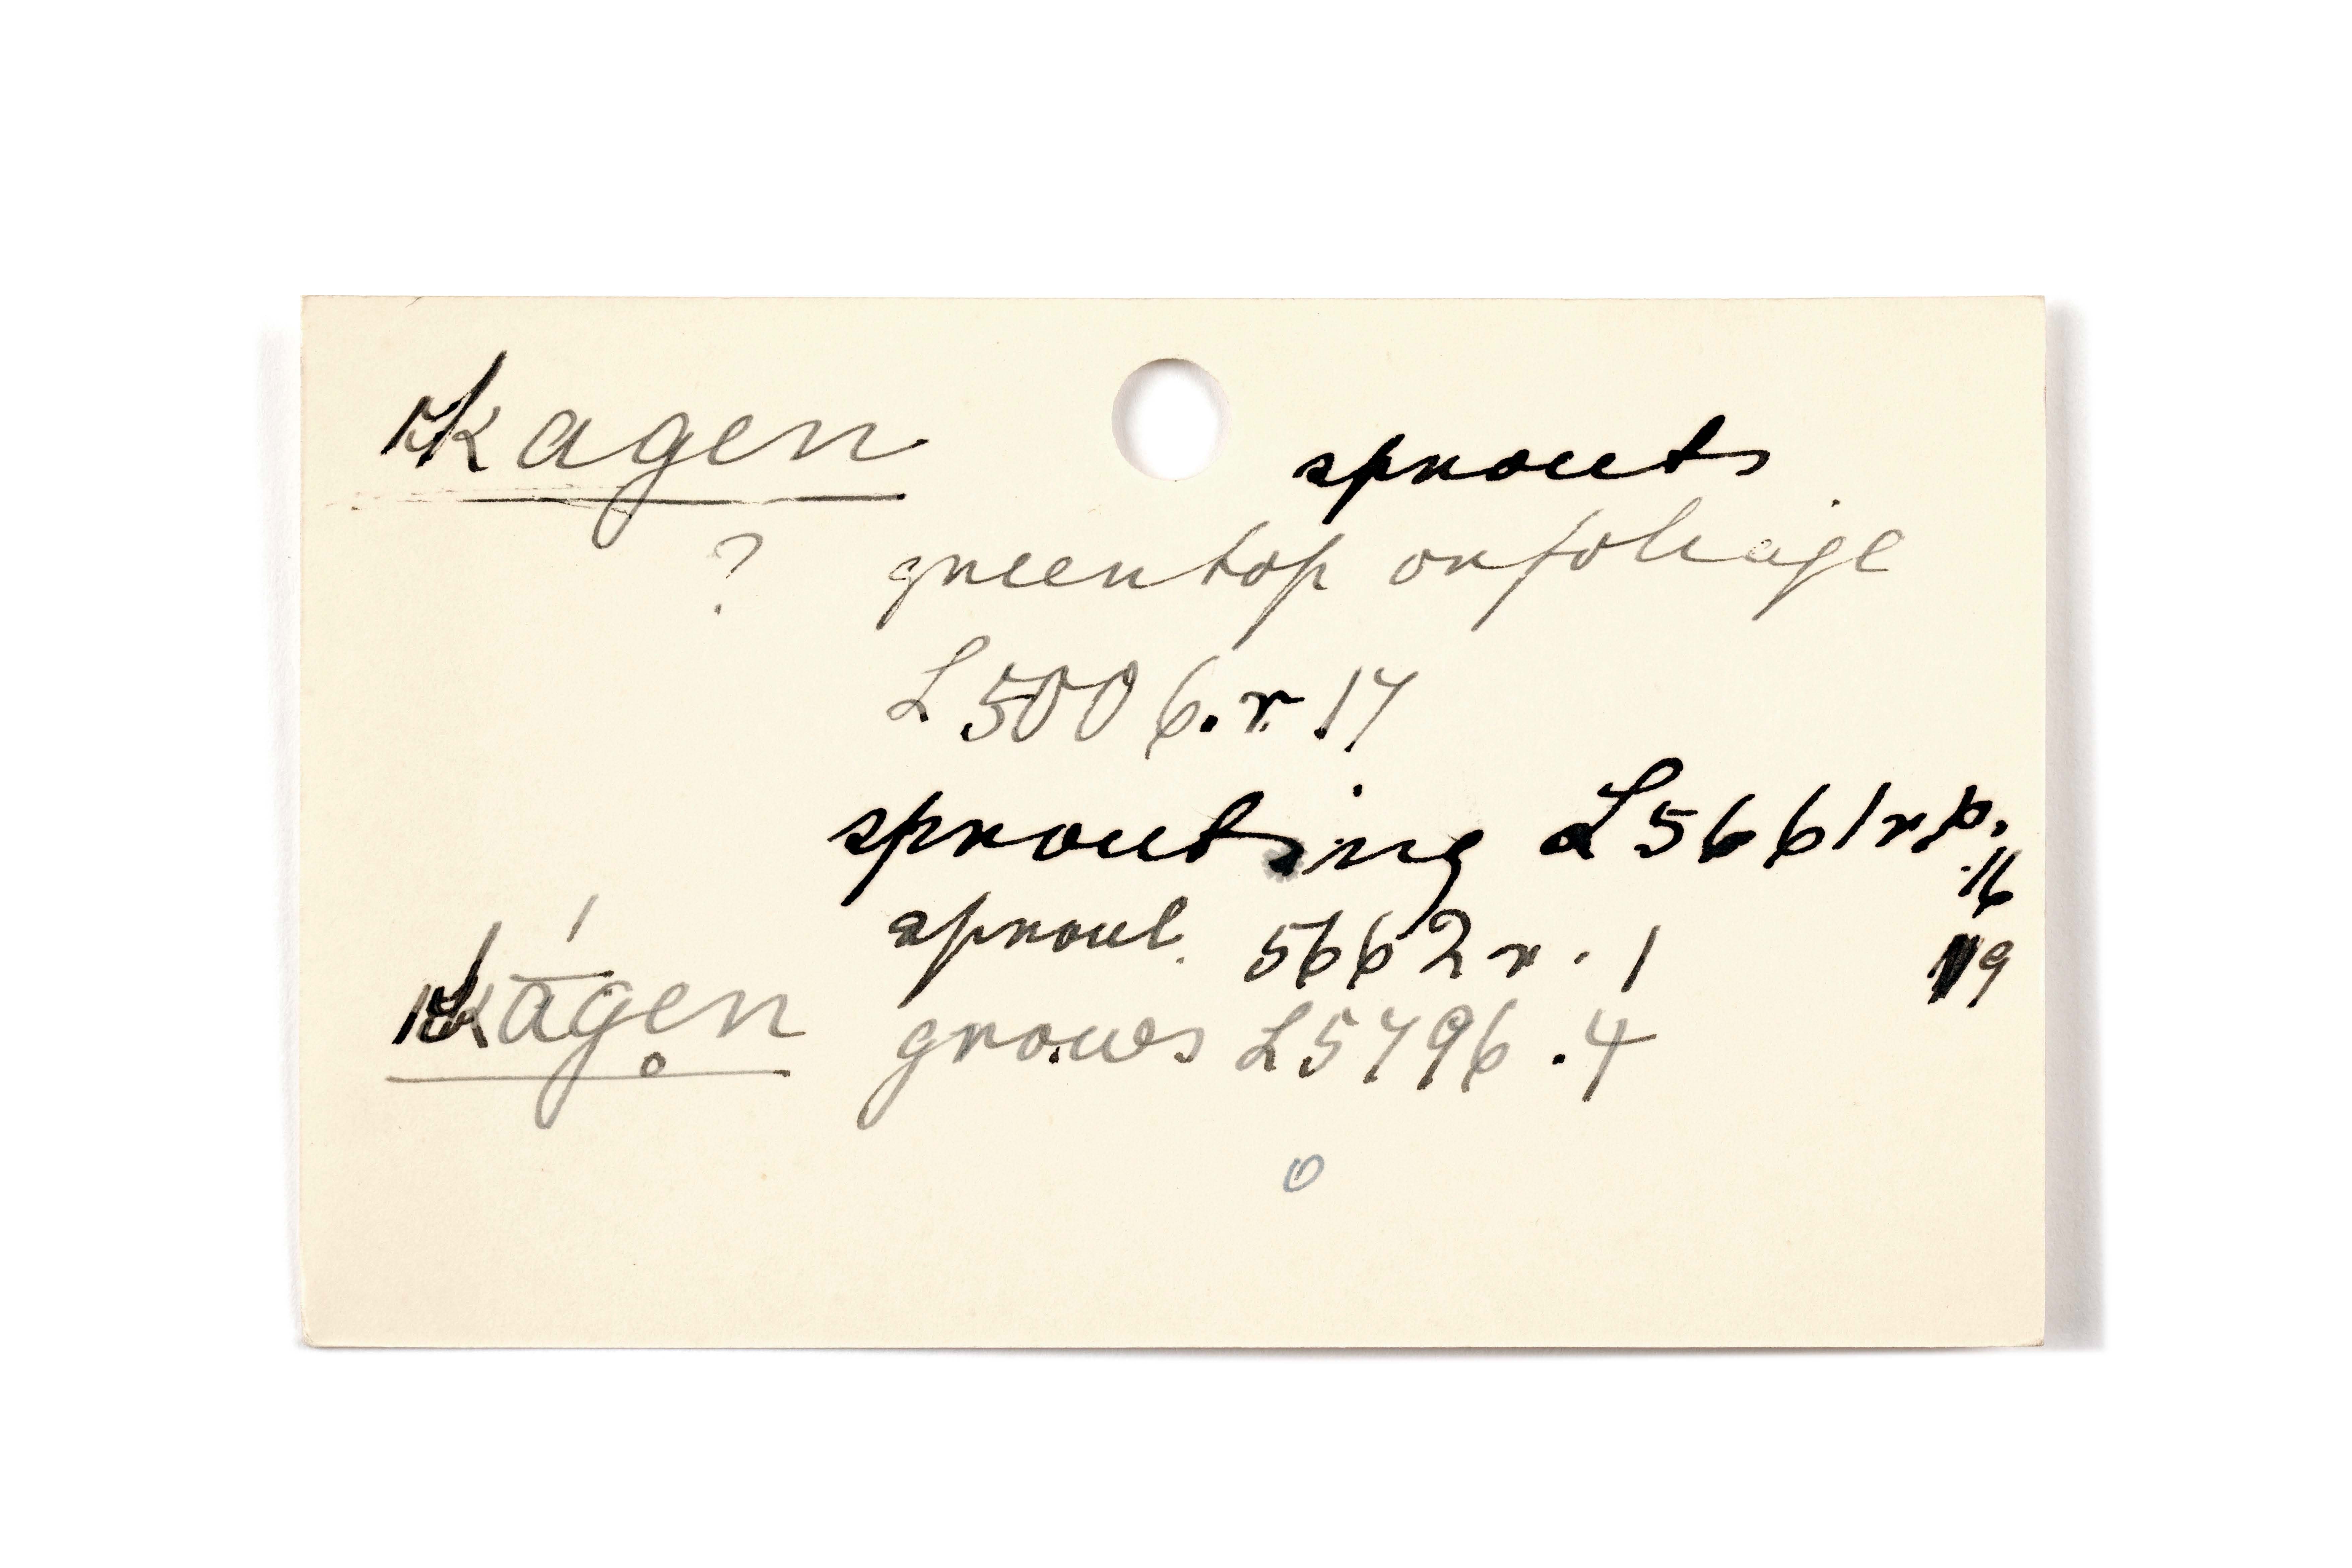 kagen sprouts
? green top or foliage
L5006.r 17
sprouting L5661 r p.
.16
sprout. 5662 r. 1 19
kā́gen grows L5796.4
o